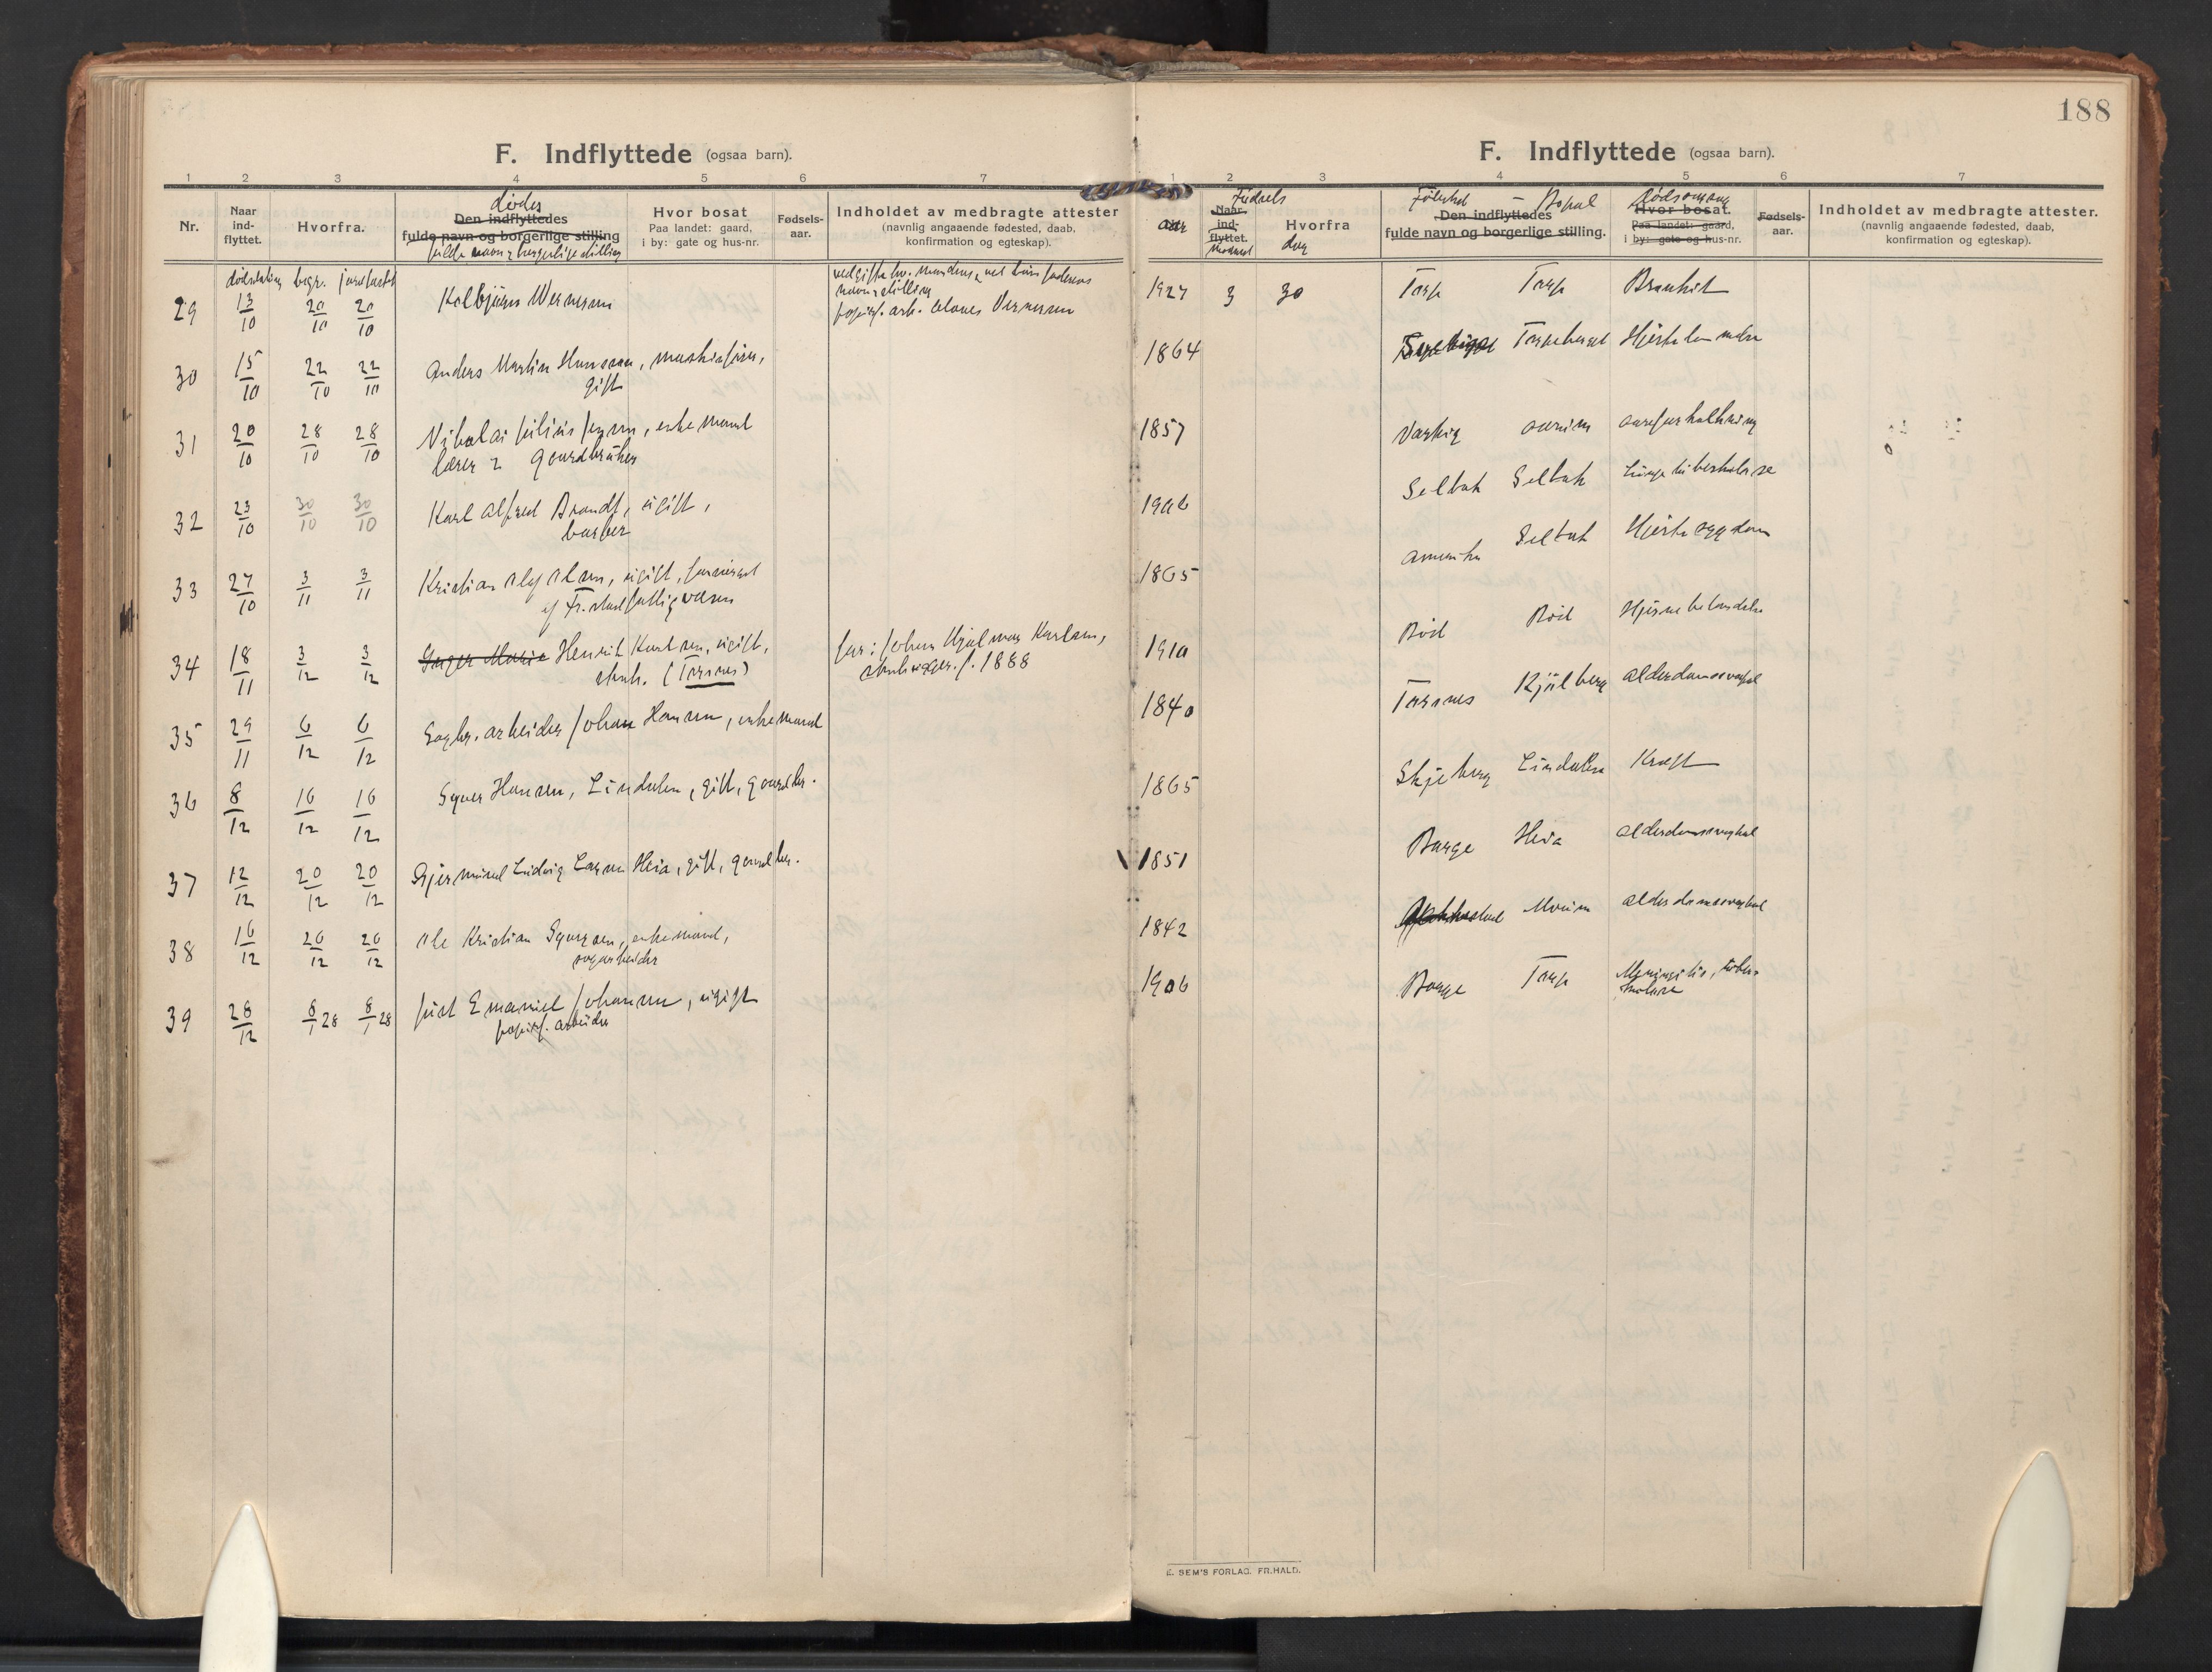 188
F. Indflyttede (ogsaa barn).
1 2 3 4 5 6 7
Nr.
Naar ind- flyttet.
Hvorfra.
dødes
Den indflyttedes
fulde navn og borgerlige stilling
fulde navn & borgerlige stilling
Hvor bosat
Paa landet: gaard,
i by: gate og hus-nr.
Fødsels-
aar.
Indholdet av medbragte attester
(navnlig angaaende fødested, daab,
konfirmation og egteskap).
begr. jordfæstet
29 13/10 20/10 20/10 Kolbjørn Wernersen
navn & stilling
papirf. arb.
30 15/10 22/10 22/10 Anders Martin Hansen,
gift
31 20/10 28/10 28/10 Nikolai Julius Jensen, enkemand
lærer & gaardbruker
32 23/10 30/10 30/10 Karl Alfred Brandt, ugift,
barber
33 27/10 3/11 3/11 Kristian Olaf Olsen, ugift, forsørget
af Fr.stad fattigvæsen
34 18/11 3/12 3/12 Inger Marie Henrik Karlsen, ugift,
(Torsnes)
far: Johan Hjalmar Karlsen,
f. 1888
35 29/11 6/12 6/12 Sagbr. arbeider Johan Hansen, enkemand
36 8/12 16/12 16/12 Syver Hansen, Lindalen, gift, gaardbr.
37 12/12 20/12 20/12 Gjermund Ludvig Larsen Heia, gift, gaardbr.
38 16/12 26/12 26/12 Ole Kristian Syversen, enkemand,
sagarbeider
39 28/12 8/1 28 8/1 28 Just Emanuel Johansen, ugift
papirf. arbeider
F. Indflyttede (ogsaa barn).
1 2 3 4 5 6 7
aar
Fødsels
Naar ind- flyttet.
maaned
Hvorfra
dag
Fødested - Bopæl
Den indflyttedes
fulde navn og borgerlige stilling.
Dødsaarsag
Hvor bosat.
Paa landet: gaard,
i by: gate og hus-nr.
Fødsels-
aar.
Indholdet av medbragte attester.
(navnlig angaaende fødested, daab,
konfirmation og egteskap).
1927 3 30 Torp Torp Bronkit
1864 Torpeberget Hjertelammelse
1857 Varteig Aarum Aareforkalkning
1906 Selbak Selbak Lungetuberkulose
1865 Amerika Selbak Hjertesygdom
1910 Rød Rød Hjernebetændelse
1840 Torsnes Kjølberg Alderdomssvakh.
1865 Skjeberg Lindalen Kræft
1851 Borge Heia Alderdomssvakh.
1842 Moum Alderdomssvakh.
1906 Borge Torp Meningitis, tuber-
kulose
E. SEM'S FORLAG. FR.HALD.